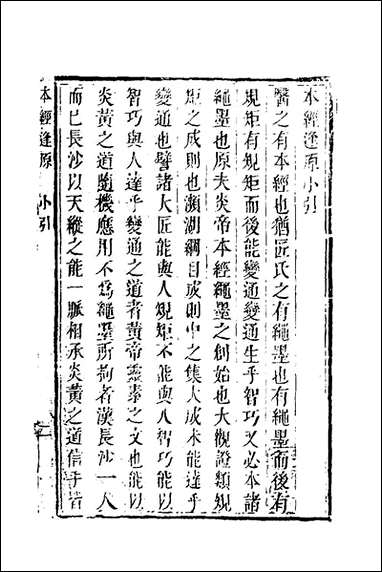 本經逢原小引
醫之有本經也猶匠氏之有繩墨也有繩墨而後有
規矩有規矩而後能變通變通生乎智巧又必本諸
繩墨也原夫炎帝本經繩墨之創始也大觀證類規
矩之成則也瀕湖綱目成則中之集大成未能達乎
變通也譬諸大匠能與人規矩不能與人智巧能以
智巧與人達乎變通之道者黃帝靈素之文也能以
炎黃之道隨機應用不爲繩墨所拘者漢長沙一人
而已長沙以天縱之能一脈相承炎黃之道信手皆
本經逢原 小引